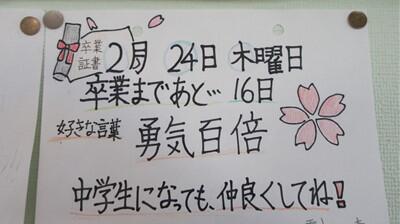 卒業
証書
2月 24日 木曜日
卒業まであと… 16日
好きな言葉
勇気百倍
中学生になっても、仲良くしてね!